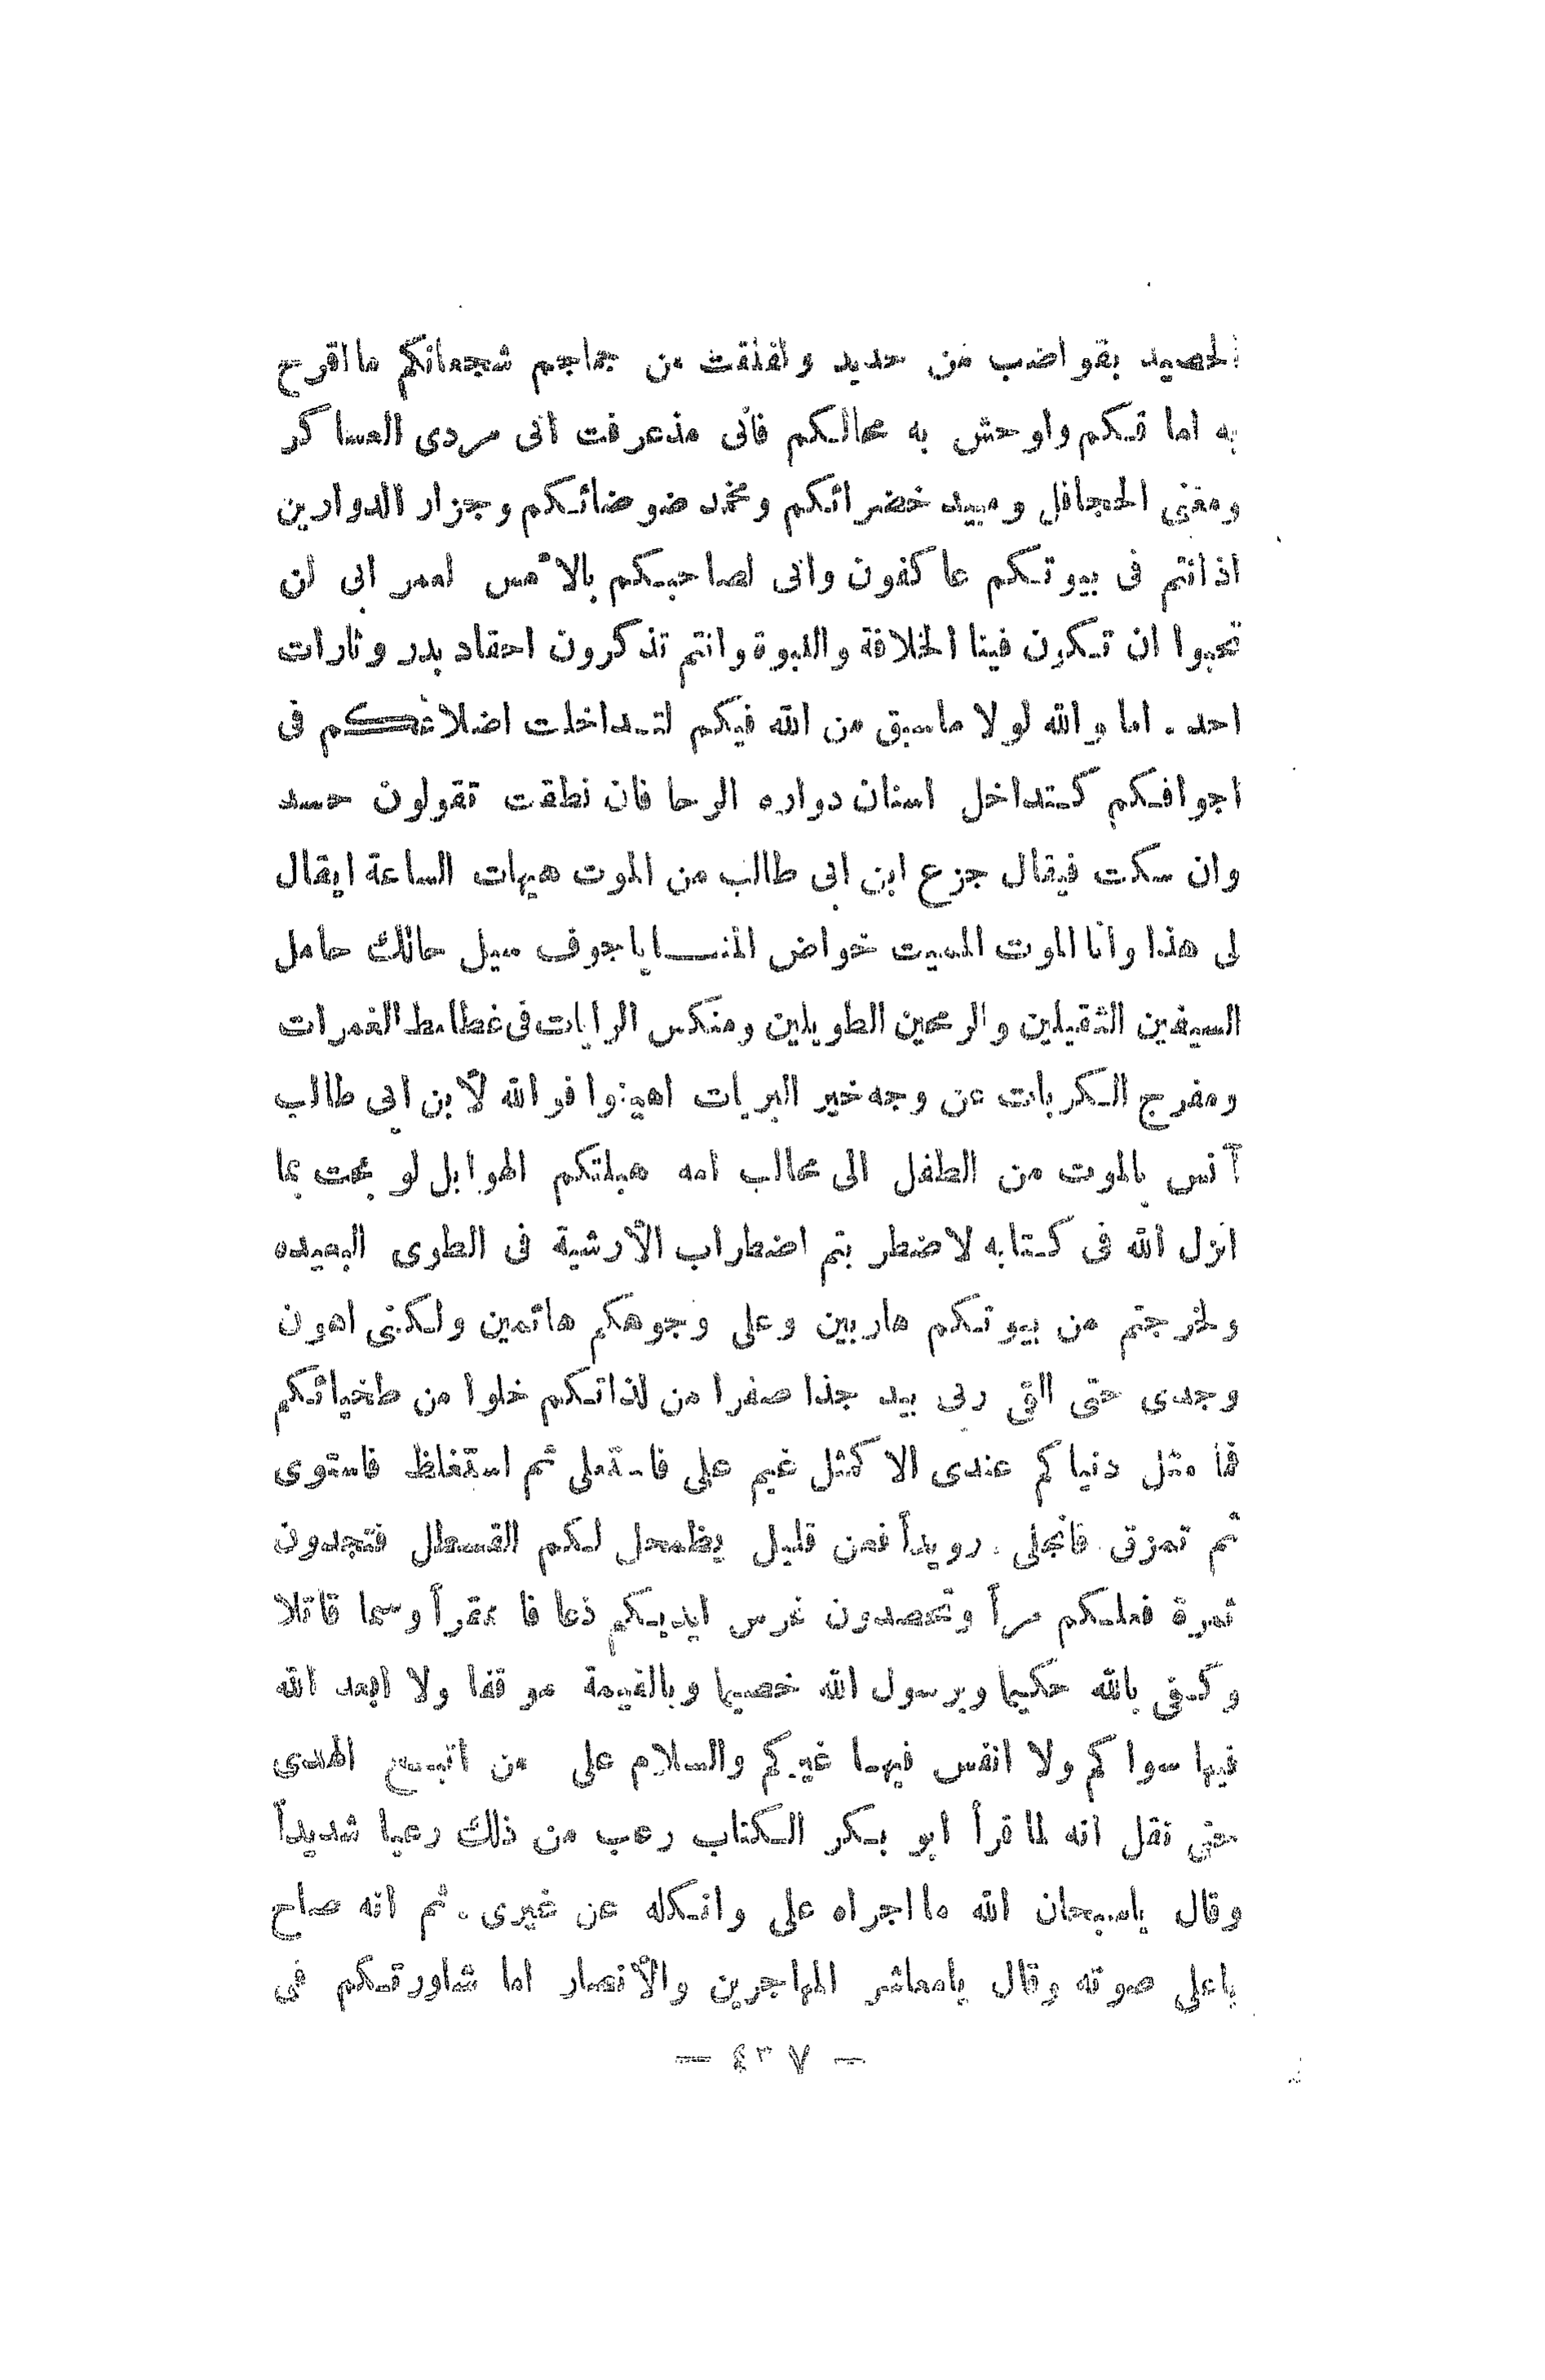 الحصيد بقواضب من حديد ولفلقت من جماجم شجعانكم ما اقرح
به اماقكم واوحش به محالكم فانى مذعرفت انى مردى العساكر
ومفنى الحجافل ومبيد خضرائكم ومخمد ضوضائكم وجزار الدوارين
اذ انتم فى بيوتكم عاكفون وانى لصاحبكم بالأمس لعمر ابى لن
تحبوا ان تكون فينا الخلافة والنبوة وانتم تذكرون احقاد بدر وثارات
احد . اما والله لولا ماسبق من الله فيكم لتداخلت اضلاعكم فى
اجوافكم كتداخل اسنان دواره الرحا فان نطقت تقولون حسد
وان سكت فيقال جزع ابن ابى طالب من الموت هيهات الساعة ايقال
لى هذا وأنا الموت المميت خواض المنايا جوف ميل حالك حامل
السيفين الثقيلين والرمحين الطويلين ومنكس الرايات فى غطامط الغمرات
ومفرج الكربات عن وجه خير البريات اهينوا فوالله لأبن ابى طالب
آنس بالموت من الطفل الى محالب امه هبلتكم الهوابل لو بحت بما
انزل الله فى كتابه لاضطربتم اضطراب الأرشية فى الطوى البعيده
ولخرجتم من بيوتكم هاربين وعلى وجوهكم هائمين ولكنى اهون
وجدى حتى القى ربى بيد جذا صفرا من لذاتكم خلوا من طخيائكم
فما مثل دنياكم عندى الا كمثل غيم على فاستعلى ثم استغلظ فاستوى
ثم تمزق فانجلى . رويداً فعن قليل يظمحل لكم القسطل فتجدون
ثمرة فعلكم مراً وتحصدون غرس ايديكم ذعافا ممقراً وسما قاتلا
وكفى بالله حكيما وبرسول الله خصيما وبالقيمة موقفا ولا ابعد الله
فيها سواكم ولا اتقس فيها غيركم والسلام على من اتبع الهدى
حتى نقل انه لما قرأ ابو بكر الكتاب رعب من ذلك رعبا شديداً
وقال ياسبحان الله ما اجراه على وانكله عن غيرى . ثم انه صاح
باعلى صوته وقال يامعاشر المهاجرين والأنصار اما شاورتكم فى
— ٤٣٧ —